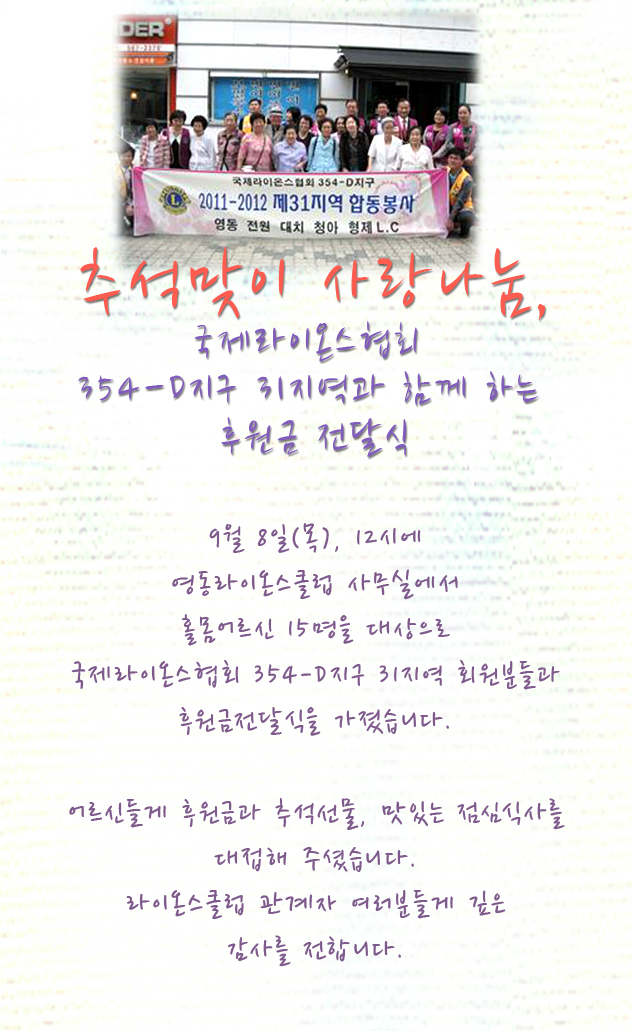 DER
국제라이온스협회 354-D지구
2011-2012 제31지역 합동봉사
영동 전원 대치 청아 형제 L.C
L
추석맞이 사랑나눔,
국제라이온스협회
354-D지구 31지역과 함께 하는
후원금 전달식
9월 8일(목), 12시에
영동라이온스클럽 사무실에서
홀몸어르신 15명을 대상으로
국제라이온스협회 354-D지구 31지역 회원분들과
후원금전달식을 가졌습니다.
어르신들게 후원금과 추석선물, 맛있는 점심식사를
대접해 주셨습니다.
라이온스클럽 관계자 여러분들게 깊은
감사를 전합니다.